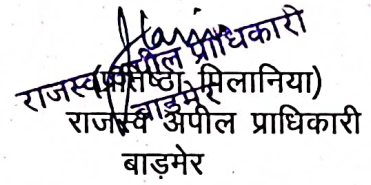 राजस्व अपील प्राधिकारी
बाड़मेर
(प्रतिष्ठा मिलानिया)
राजस्व अपील प्राधिकारी
बाड़मेर